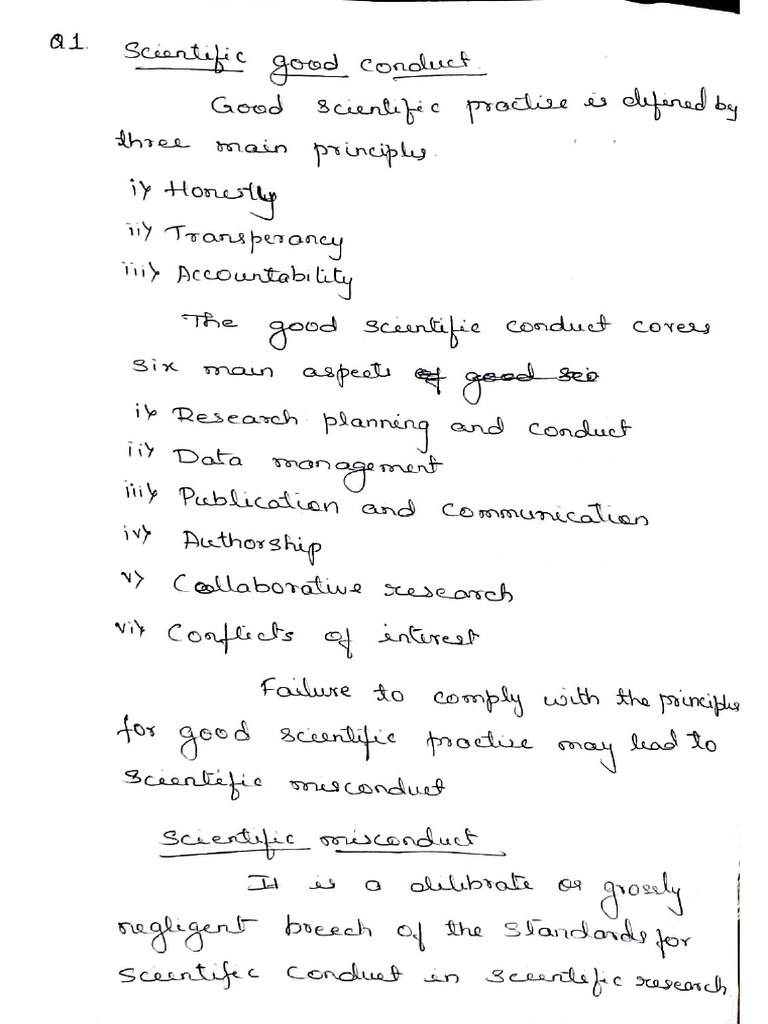 Q1. Scientific good conduct.
Good scientific practise is defined by
three main principles.
i) Honestly
ii) Transperancy
iii) Accountability
The good scientific conduct covers
six main aspects of good sci
i) Research planning and conduct
ii) Data management
iii) Publication and communication
iv) Authorship
v) Collaborative research
vi) Conflicts of interest
Failure to comply with the principles
for good scientific practise may lead to
scientific misconduct
Scientific misconduct
It is a delibrate or grossly
negligent breech of the standards for
scientific conduct in scientific research